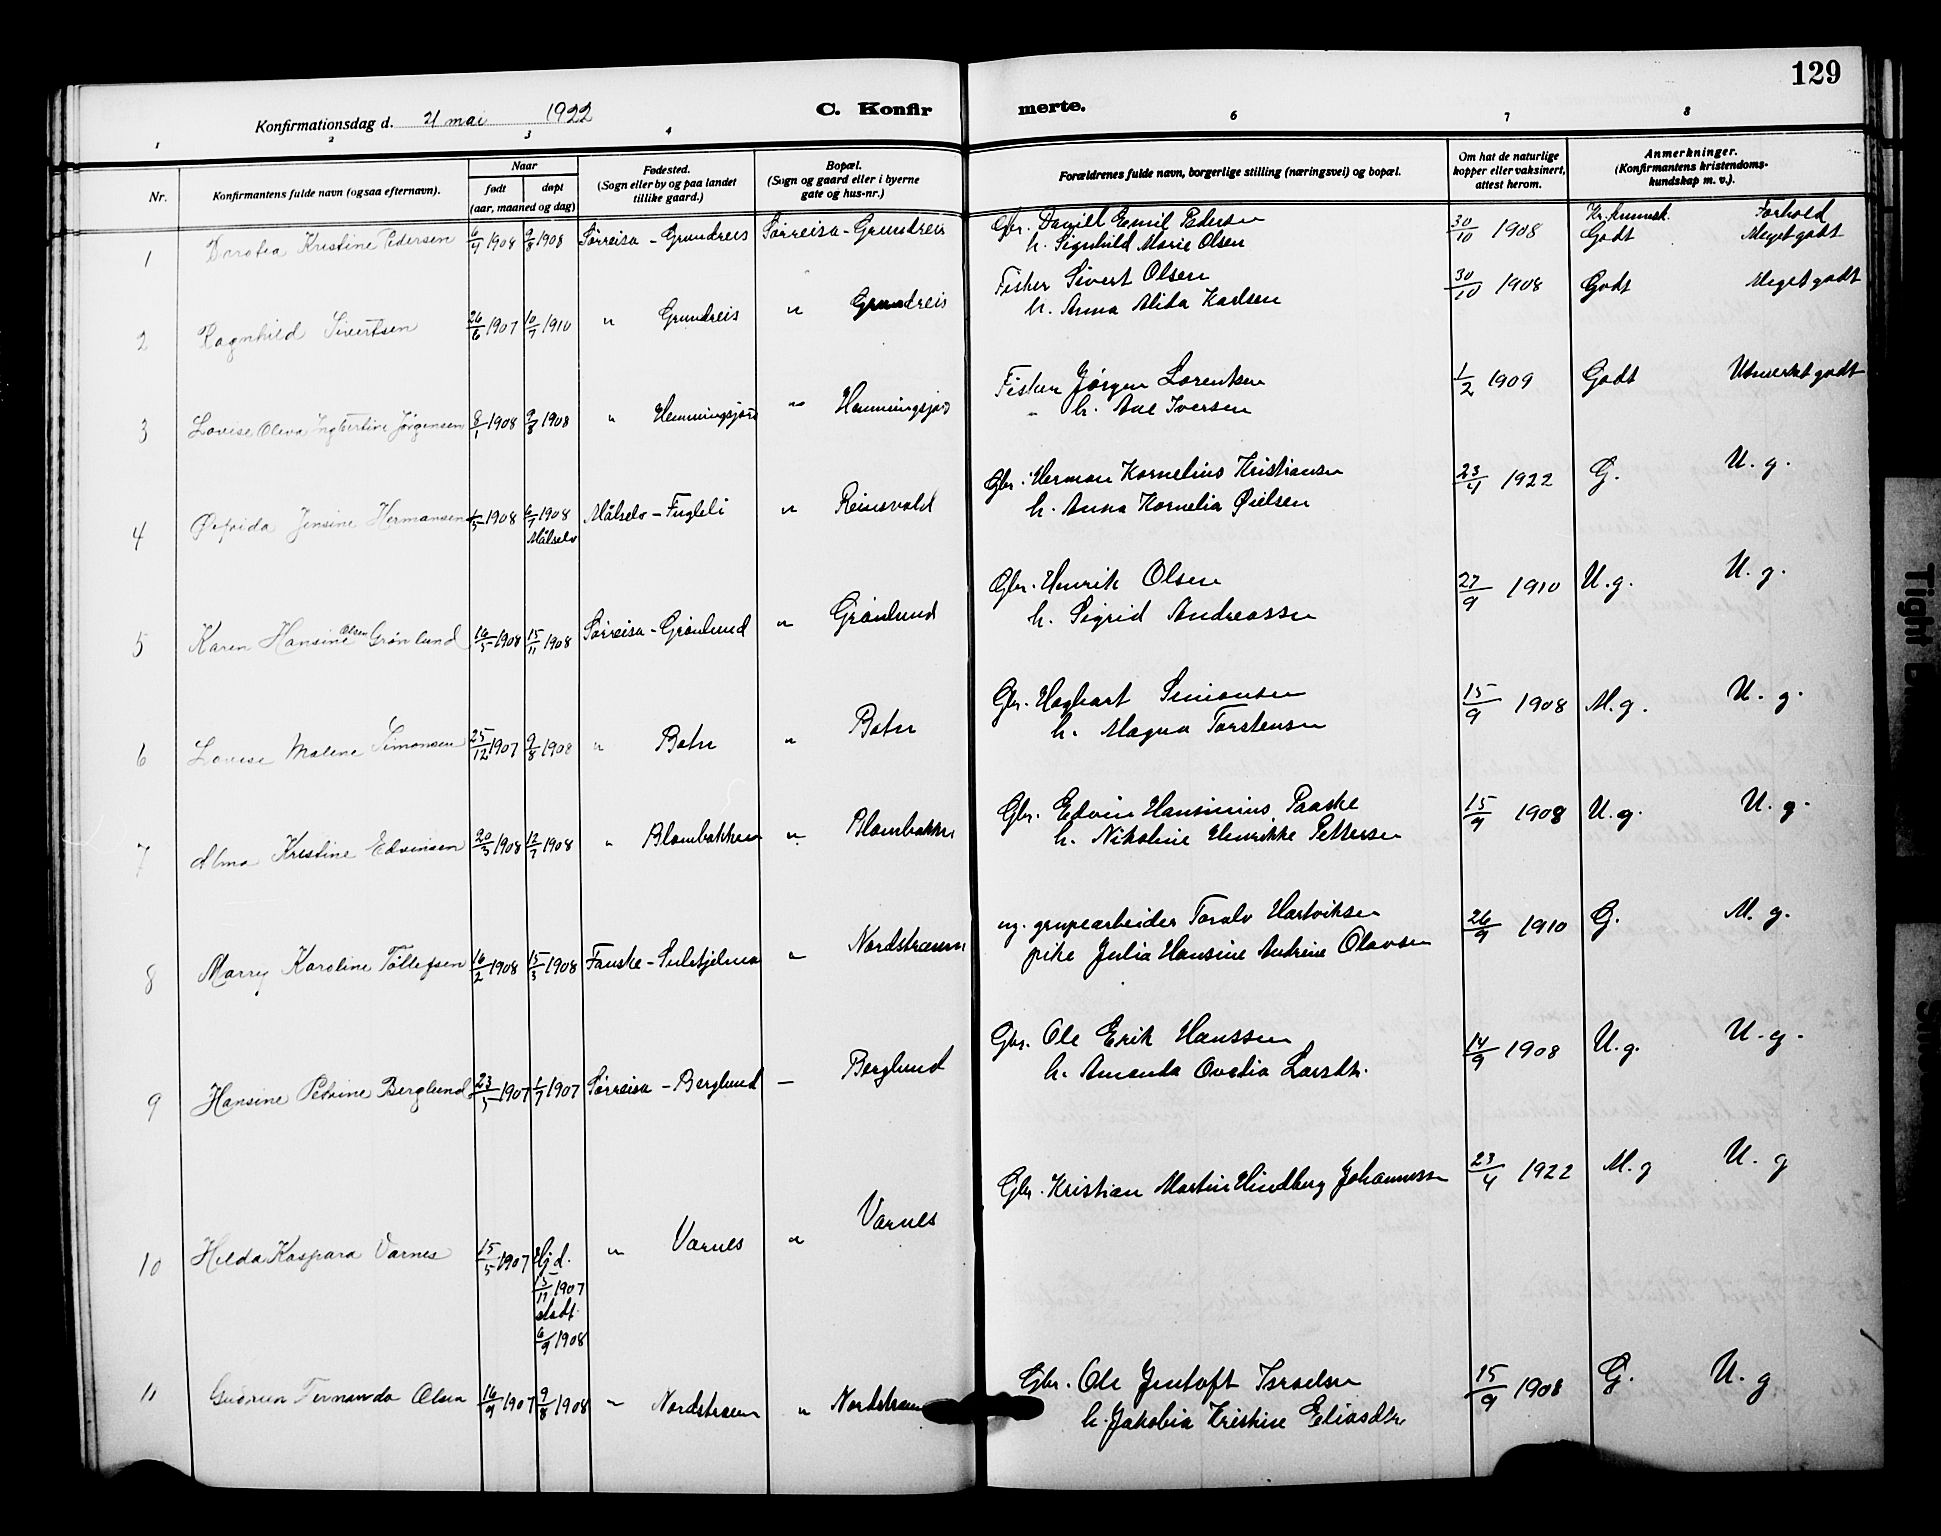 129
Konfirmationsdag d. 21 mai 1922 C. Konfirmerte.
1 2 3 4 6 7 8
Nr.
Konfirmantens fulde navn (ogsaa efternavn).
Naar
født døpt
(aar, maaned og dag)
Fødested.
(Sogn eller by og paa landet
tillike gaard.)
Bopæl.
(Sogn og gaard eller i byerne
gate og hus-nr.)
Forældrenes fulde navn, borgerlige stilling (næringsvei) og bopæl.
Om hat de naturlige
kopper eller vaksinert,
attest herom.
Anmerkninger.
(Konfirmantens kristendoms-
kundskap m. v.).
Kr. kunnsk. Forhold
1 Dorotea Kristine Pedersen 6/7 1908 9/8 1908 Sørreisa - Grundreis Sørreisa - Grundreis Gbr. Daniel Emil Pedersen 30/10 1908 Godt Meget godt
h. Signhild Marie Olsen
2 Ragnhild Sivertsen 26/6 1907 10/7 1910 " Grundreis " Grundreis Fisker Sivert Olsen 30/10 1908 Godt Meget godt
h. Anna Alida Karlsen
3 Lovise Oleva Ingbertine Jørgensen 8/1 1908 9/8 1908 " Hemmingsjord " Hemmingsjord Fisker Jørgen Lorentsen 1/2 1909 Godt Utmerket godt
" h. Ane Iversen
4 Østrida Jensine Hermansen 1/5 1908 6/7 1908 Målselv - Fugleli " Reinsvold Gbr. Herman Kornelius Kristiansen 23/4 1922 G. U. g.
Målselv
h. Anna Kornelia Øielsen
5 Karen Hansine Olsen Grønlund 16/5 1908 15/11 1908 Sørreisa - Grønlund " Grønlund Gbr. Henrik Olsen 27/9 1910 U. g. U. g.
h. Sigrid Andreassen
6 Lovise Malene Simonsen 25/12 1907 9/8 1908 " Botn " Botn Gbr. Hagbart Simonsen 15/9 1908 M. g. U. g.
h. Magna Torstensen
7 Alma Kristine Edvinsen 20/3 1908 12/7 1908 " Blombakken " Blombakken Gbr. Edvin Hansinius Paaske 15/9 1908 U. g. U. g.
h. Nikoline Henrikke Pettersen
8 Marry Karoline Tollefsen 16/2 1908 15/3 1908 Fauske - Sulitjelma " Nordstraumen ug. grupearbeider Toralv Hartviksen 26/9 1910 G. M. g.
pike Julia Hansine Andrine Olavsen
9 Hansine Petrine Berglund 23/5 1907 1/7 1907 Sørreisa - Berglund — Berglund Gbr. Ole Erik Hanssen 14/9 1908 U. g. U. g.
h. Amanda Ovedia Larsdtr.
10 Hilda Kaspara Varnes 15/5 1907 Hj.d. " Varnes " Varnes Gbr. Kristian Martin Hindberg Johannessen 23/4 1922 M. g U. g
3/11 1907
stadf.
6/9 1908
11 Gudrun Fernanda Olsen 16/9 1907 9/8 1908 " Nordstraumen " Nordstraumen Gbr. Ole Jentoft Israelsen 15/9 1908 G. U. g
h. Jakobia Kristine Eliasdtr